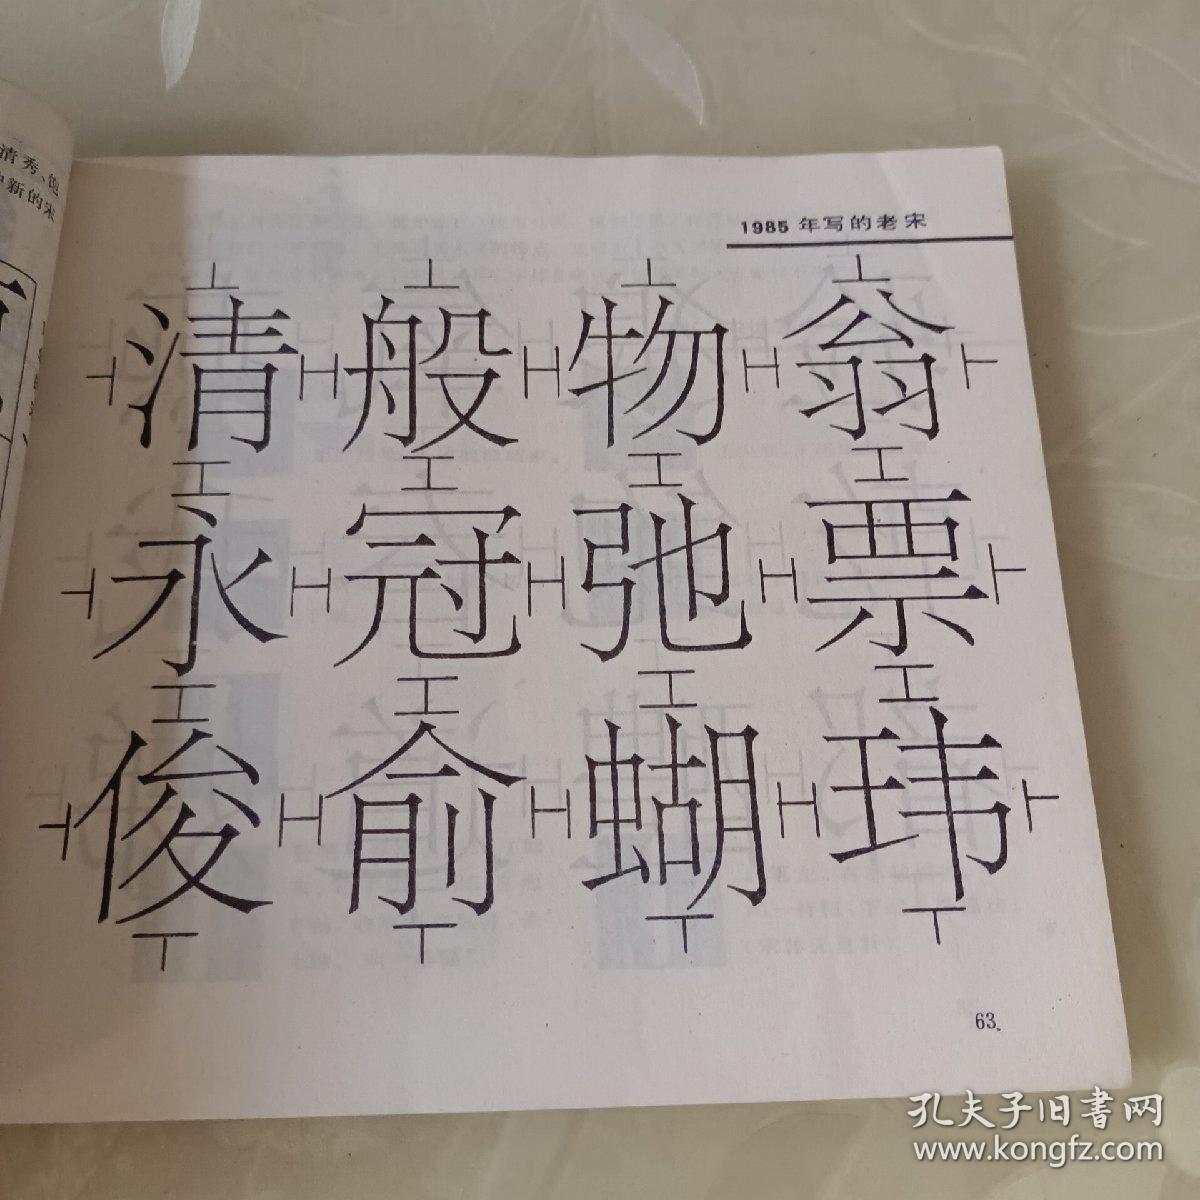 清秀、饱
新的宋
1985 年写的老宋
清般物翁
永冠弛票
俊俞蝴玮
63
孔夫子旧書网
www.kongfz.com